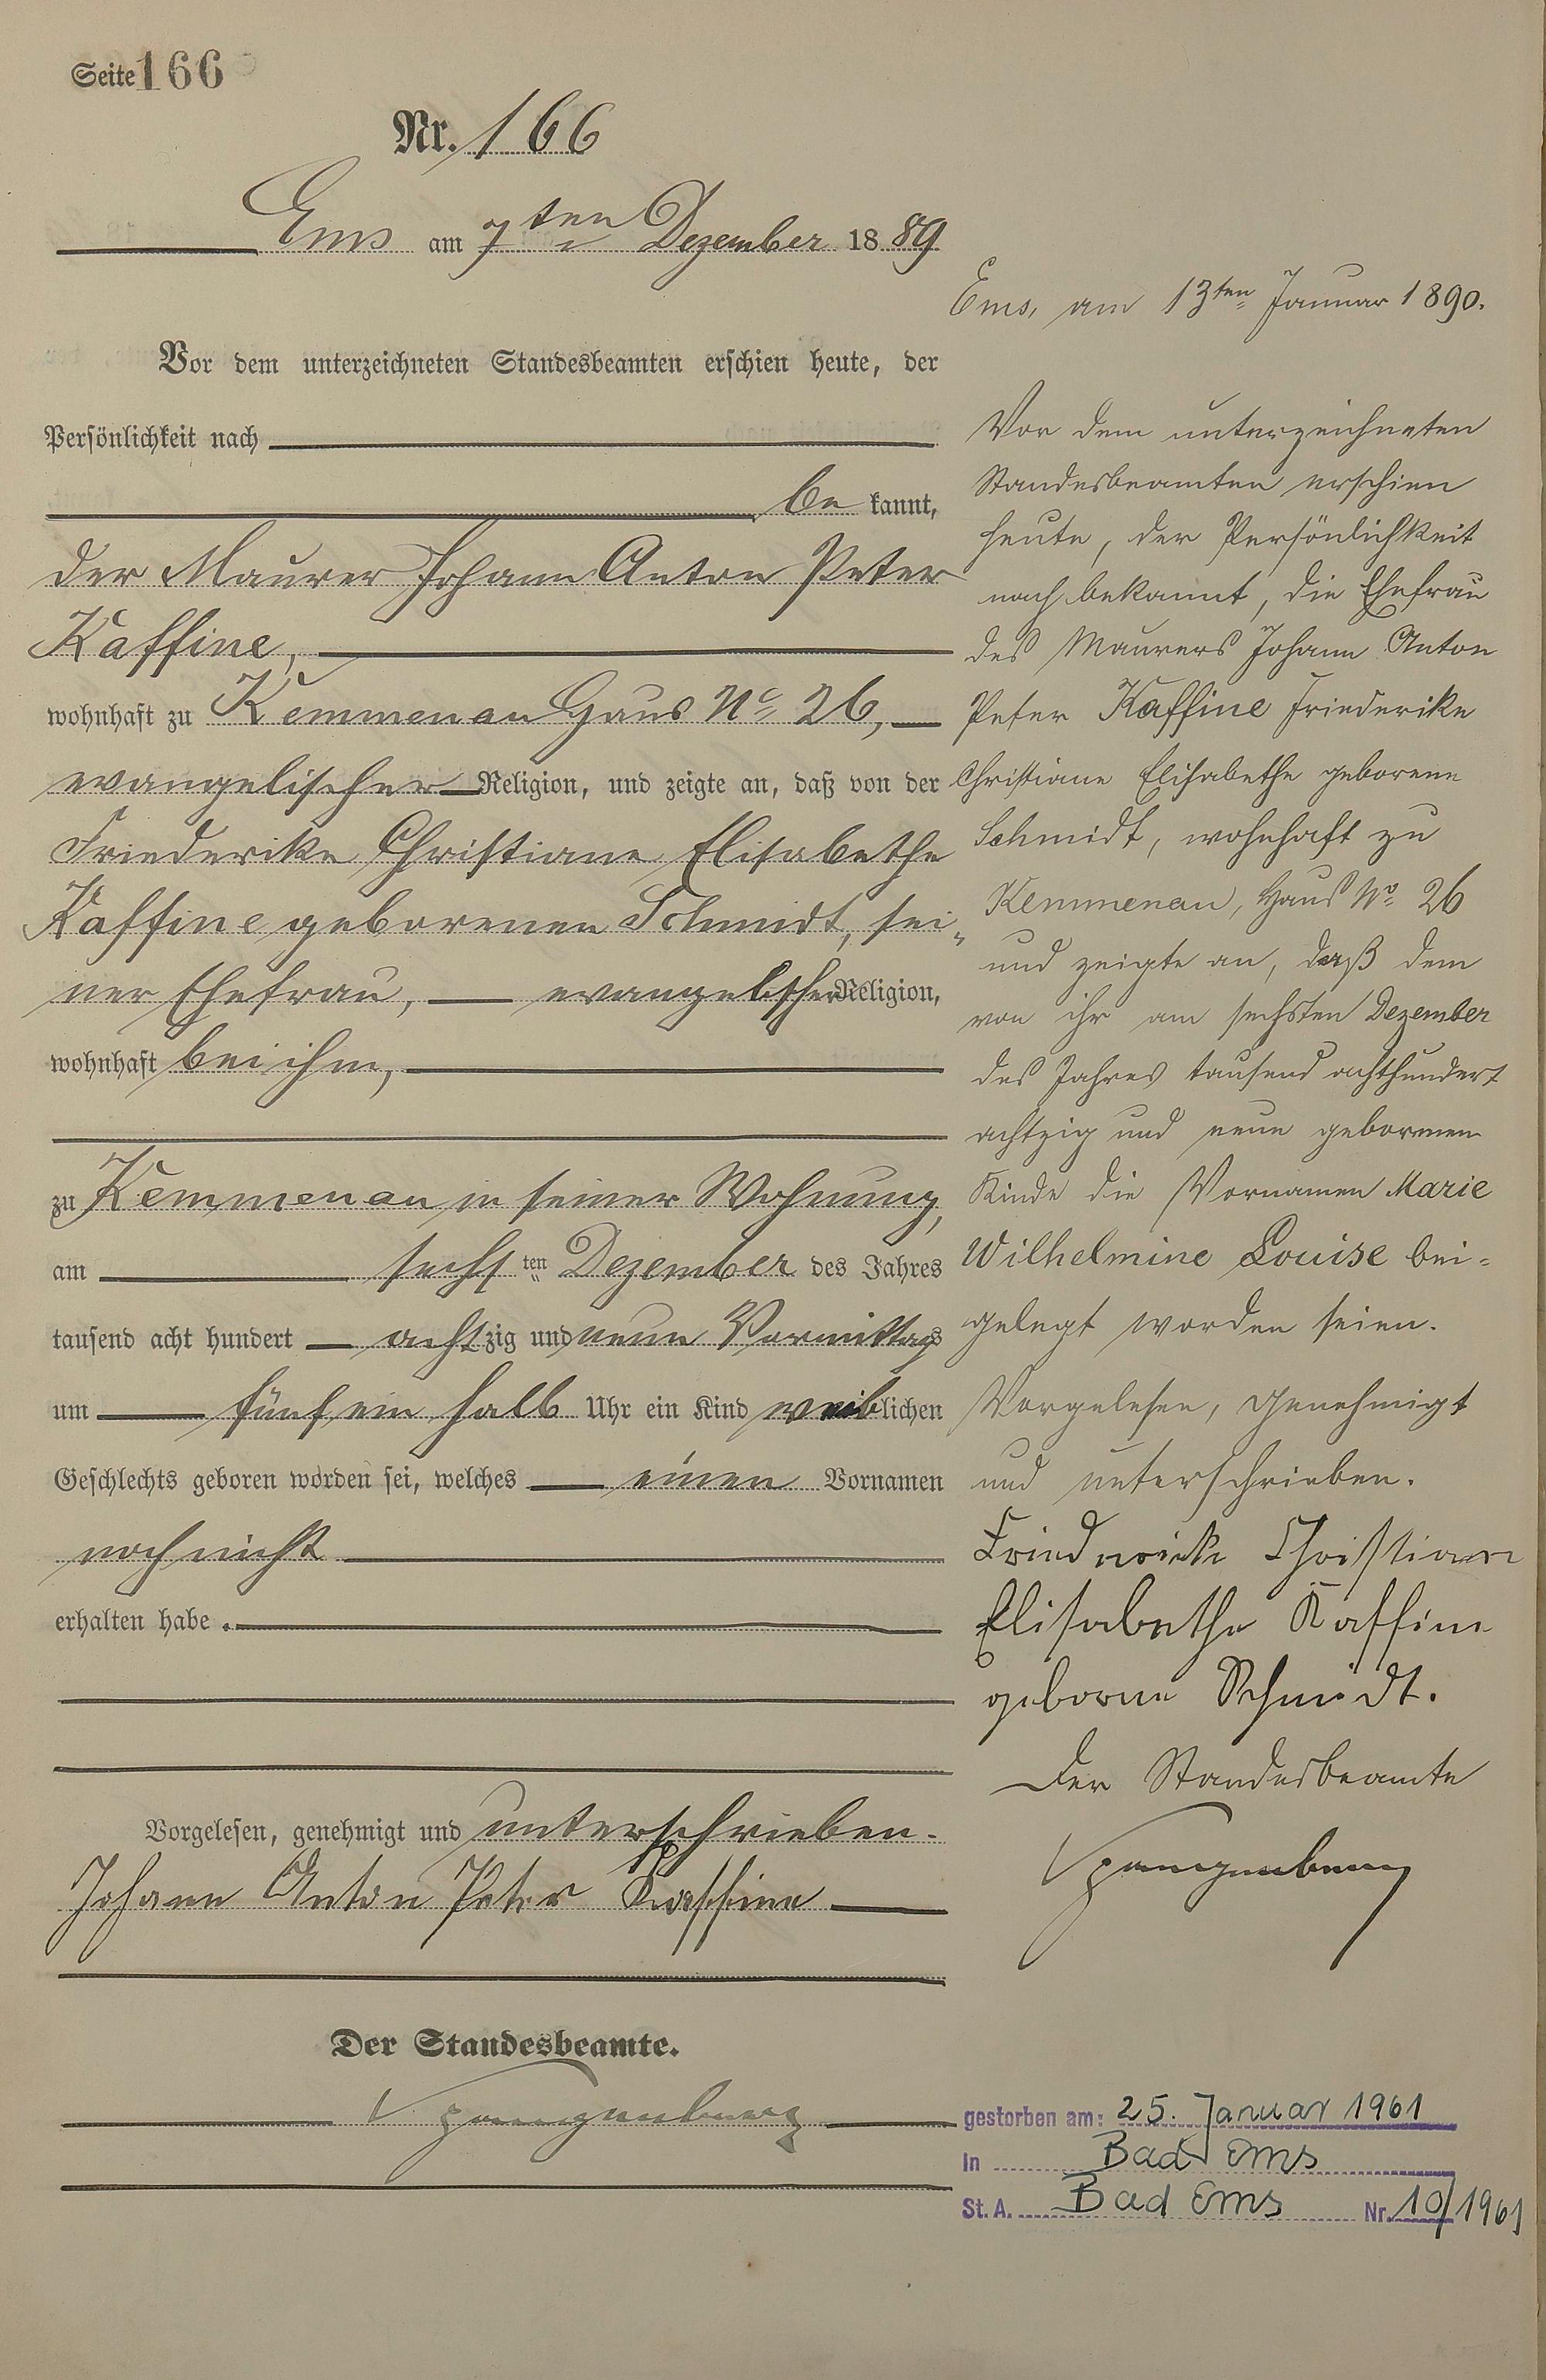 Seite 166
Nr. 166
Ems am 7ten Dezember 1889
Vor dem unterzeichneten Standesbeamten erschien heute, der
Persönlichkeit nach
be kannt,
der Maurer Johann Anton Peter
Kaffine,
wohnhaft zu Kemmenau Haus No 26,
evangelischer Religion, und zeigte an, daß von der
Friederike Christiane Elisabethe
Kaffine geborenen Schmidt, sei-
ner Ehefrau, evangelischer Religion,
wohnhaft bei ihm,
zu Kemmenau in seiner Wohnung,
am sechsten Dezember des Jahres
tausend acht hundert achtzig und neun Vormittags
um fünf ein halb Uhr ein Kind weiblichen
Geschlechts geboren worden sei, welches einen Vornamen
noch nicht
erhalten habe.
Vorgelesen, genehmigt und unterschrieben.
Johann Anton Peter Kaffine
Der Standesbeamte.
Spangenberg
Ems, am 13ten Januar 1890.
Vor dem unterzeichneten
Standesbeamten erschien
heute, der Persönlichkeit
nach bekannt, die Ehefrau
des Maurers Johann Anton
Peter Kaffine Friederike
Christiane Elisabethe geborene
Schmidt, wohnhaft zu
Kemmenau, Haus No 26
und zeigte an, daß dem
von ihr am sechsten Dezember
des Jahres tausend achthundert
achtzig und neun geborenen
Kinde die Vornamen Marie
Wilhelmine Louise bei-
gelegt worden seien.
Vorgelesen, genehmigt
und unterschrieben.
Friedericke Christiane
Elisabethe Kaffine
geborne Schmidt.
Der Standesbeamte
Spangenberg
gestorben am: 25. Januar 1961
in Bad Ems
St. A. Bad Ems Nr. 10/1961